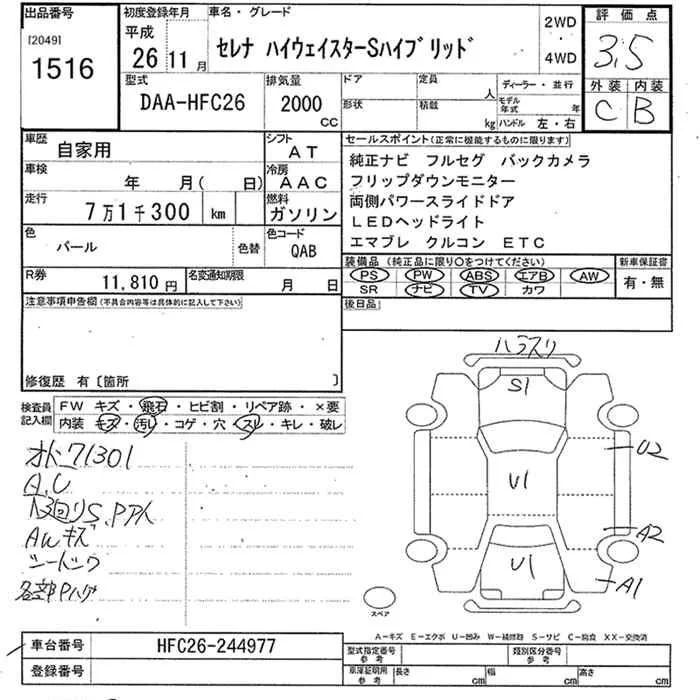 出品番号
[2049]
1516
初度登録年月
平成
26 11 月
車名・グレード
セレナ ハイウェイスターSハイブリッド
2WD
・
4WD
評価点
3.5
外装 内装
C B
型式
DAA-HFC26
排気量
2000
CC
ドア
形状
定員
人
積載
kg
ディーラー・並行
モデル年式 年
ハンドル 左・右
車歴
自家用
シフト
AT
車検
年 月( 日)
冷房
AAC
走行
7万1千300 km
燃料
ガソリン
色
パール
色替
色コード
QAB
R券
11,810 円
名変通知期限
月 日
セールスポイント(正常に機能するものに限ります)
純正ナビ フルセグ バックカメラ
フリップダウンモニター
両側パワースライドドア
LEDヘッドライト
エマブレ クルコン ETC
装備品(純正品に限り○をつけてください)
PS PW ABS エアB AW
SR ナビ TV カワ
新車保証書
有・無
後日品
注意事項申告欄(不具合内容等は具体的に記入して下さい)
修復歴 有〔箇所 〕
検査員記入欄
FW キズ・飛石・ヒビ割・リペア跡・×要
内装 キズ・汚レ・コゲ・穴・スレ・キレ・破レ
71301
A.U
AWキズ
ハラスリ
S1
U1
U1
U2
A2
A1
スペア
A―キズ E―エクボ U―凹み W―補修跡 S―サビ C―腐食 XX―交換済
車台番号
HFC26-244977
登録番号
型式指定番号
参考
類別区分番号
参考
車庫証明用
参考
長さ cm
幅 cm
高さ cm